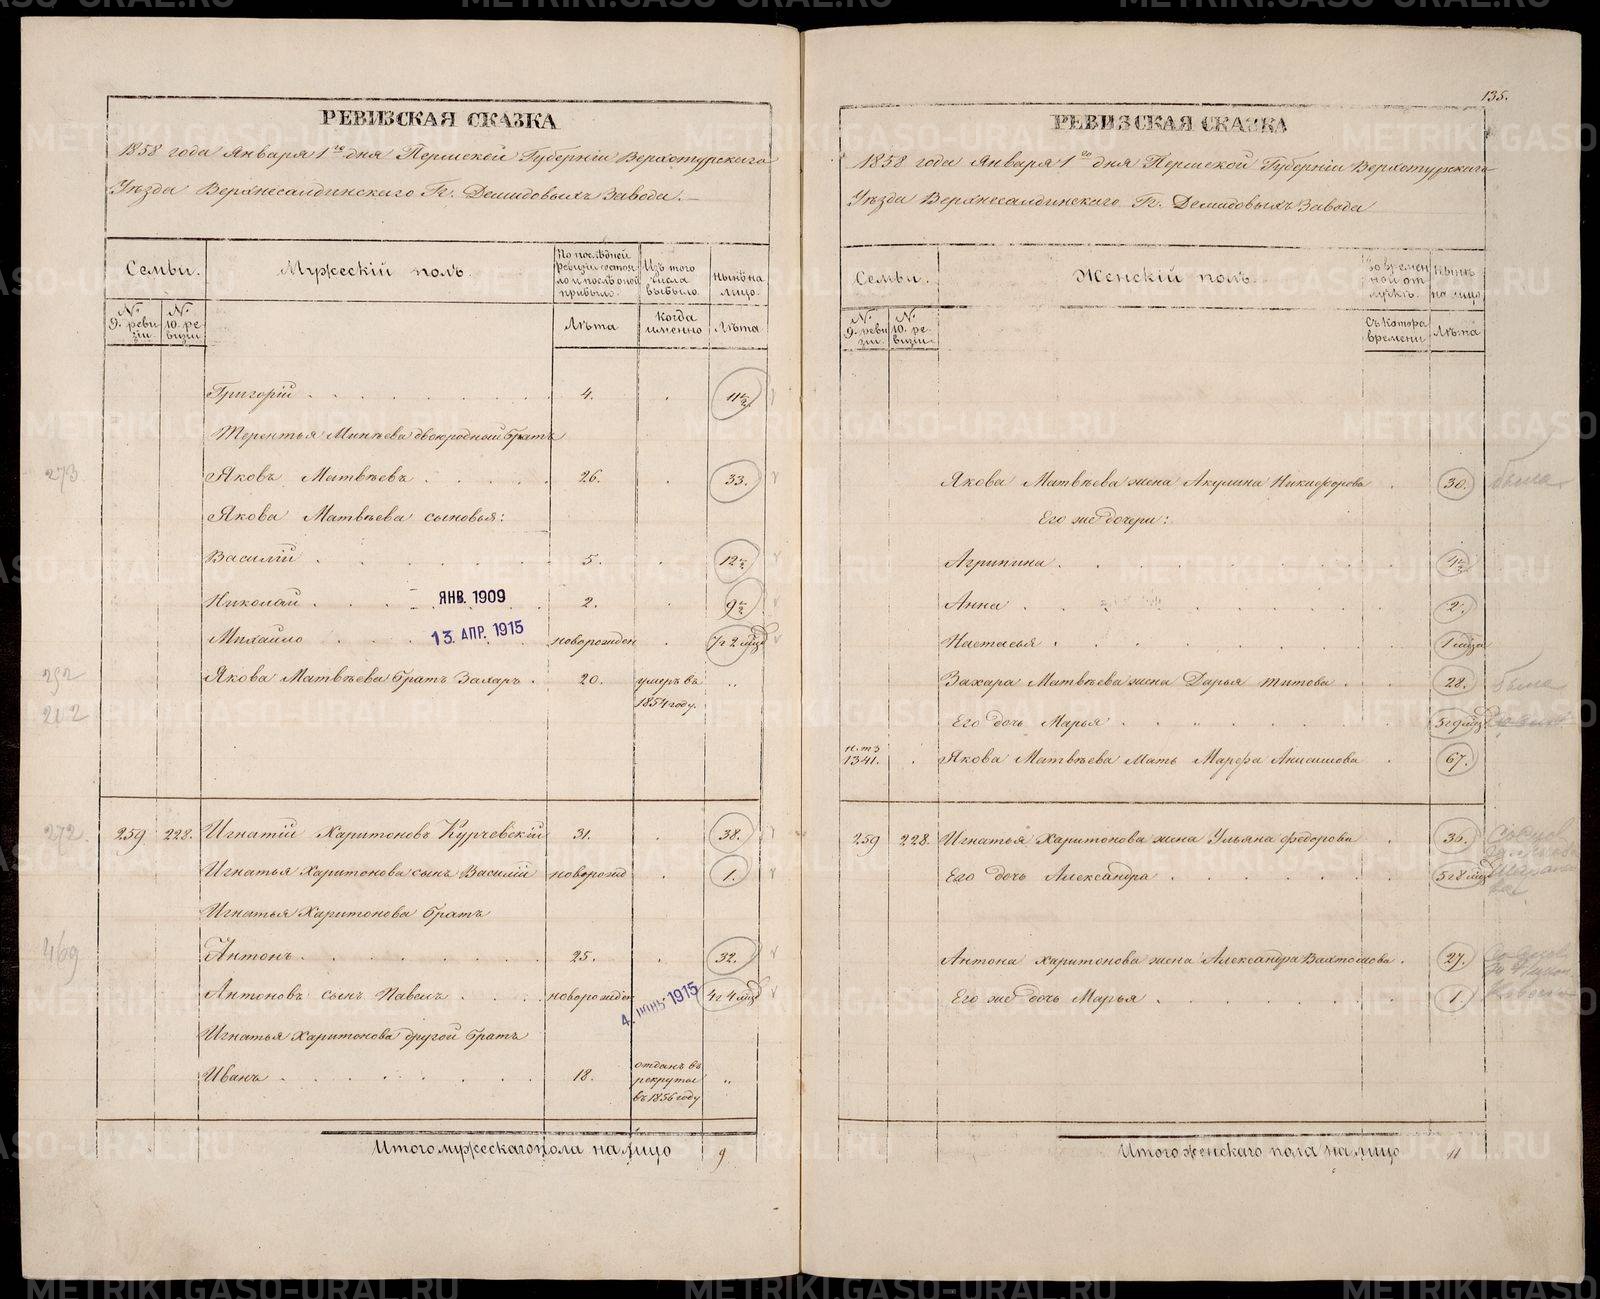 РЕВИЗСКАЯ СКАЗКА
1858 года Января 1го дня Пермской Губерніи Верхотурскаго
Уѣзда Верхнесалдинскаго Гг. Демидовыхъ Завода.
Семьи.
Мужескій полъ.
По послѣдней ревизіи состояло и послѣ оной прибыло.
Изъ того числа выбыло.
Нынѣ на лицо.
№ 9. ревизіи
№ 10. ревизіи
Лѣта
Когда именно
Лѣта
Григорій 4. 11½
Терентья Минѣева двоюродный братъ
273
Яковъ Матвѣевъ 26. 33.
Якова Матвѣева сыновья:
Василій 5. 12½
Николай 2. 9½
ЯНВ. 1909
Михайло новорожден 7 г 2 мѣц
13. АПР. 1915
Якова Матвѣева братъ Захаръ 20. умеръ въ 1854 году. „
292
202
272. 259 228. Игнатій Харитоновъ Курчевскій 31. 38.
Игнатья Харитонова сынъ Василій новорожд 1.
Игнатья Харитонова братъ
469
Антонъ 25. 32.
Антоновъ сынъ Павелъ новорожден 4 г 4 мѣц
4. 1915
Игнатья Харитонова другой братъ
Иванъ 18. отданъ въ рекруты въ 1856 году „
Итого мужескаго пола на лицо 9
135.
РЕВИЗСКАЯ СКАЗКА
1858 года Января 1го дня Пермской Губерніи Верхотурскаго
Уѣзда Верхнесалдинскаго Гг. Демидовыхъ Завода
Семьи.
Женскій полъ.
Во временной отлучкѣ.
Нынѣ на лицо
№ 9. ревизіи
№ 10. ревизіи.
Съ котора времени
Лѣта
Якова Матвѣева жена Акулина Никифорова 30. была
Его же дочери:
Агрипина 4½
Анна 2.
Настасья 1 мѣца
Захара Матвѣева жена Дарья Титова 28. была
Его дочь Марья 5 г 9 мѣц
н. т 3
1341. Якова Матвѣева Мать Марфа Анисимова 67.
259 228. Игнатья Харитонова жена Ульяна Федорова 36.
Его дочь Александра 5 г 8 мѣц
Антона Харитонова жена Александра Вахтомова 27.
Его же дочь Марья 1.
Итого женскаго пола на лицо 11
METRIKI.GASO-URAL.RU